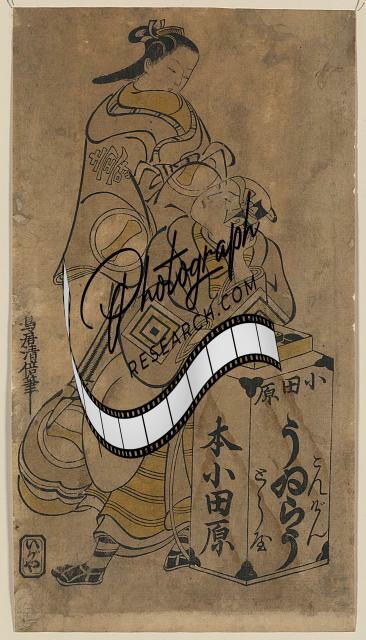 Photograph
RESEARCH.COM
小田原
こんげん
うゐらう
とらや
本小田原
鳥居清倍筆
いがや